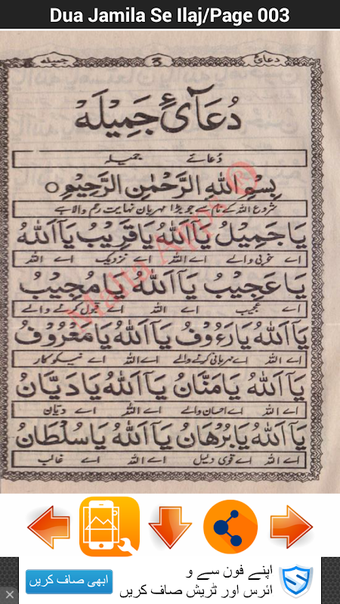 Dua Jamila Se Ilaj/Page 003
دعائ 3 جمیله
دُعَآئِ جَمِیْلَه
دعائے جمیلہ
بِسْمِ اللهِ الرَّحْمٰنِ الرَّحِيْمِ
شروع اللہ کے نام سے جو بڑا مہربان نہایت رحم والا ہے
يَا جَمِيْلُ يَآ اَللهُ يَا قَرِيْبُ يَآ اَللهُ
اے خوبی والے اے اللہ اے نزدیک اے اللہ
يَا عَجِيْبُ يَآ اَللهُ يَا مُجِيْبُ
اے عجیب اے اللہ اے قبول کرنے والے
يَآ اَللهُ يَا رَءُوْفُ يَآ اَللهُ يَا مَعْرُوْفُ
اے اللہ اے مہربانی کرنے والے اے اللہ اے نیکوکار
يَآ اَللهُ يَا مَنَّانُ يَآ اَللهُ يَا دَيَّانُ
اے اللہ اے احسان والے اے اللہ اے دیان
يَآ اَللهُ يَا بُرْهَانُ يَآ اَللهُ يَا سُلْطَانُ
اے اللہ اے قوی دلیل اے اللہ اے غالب
اپنے فون سے و
ائرس اور ٹریش صاف کریں
ابھی صاف کریں